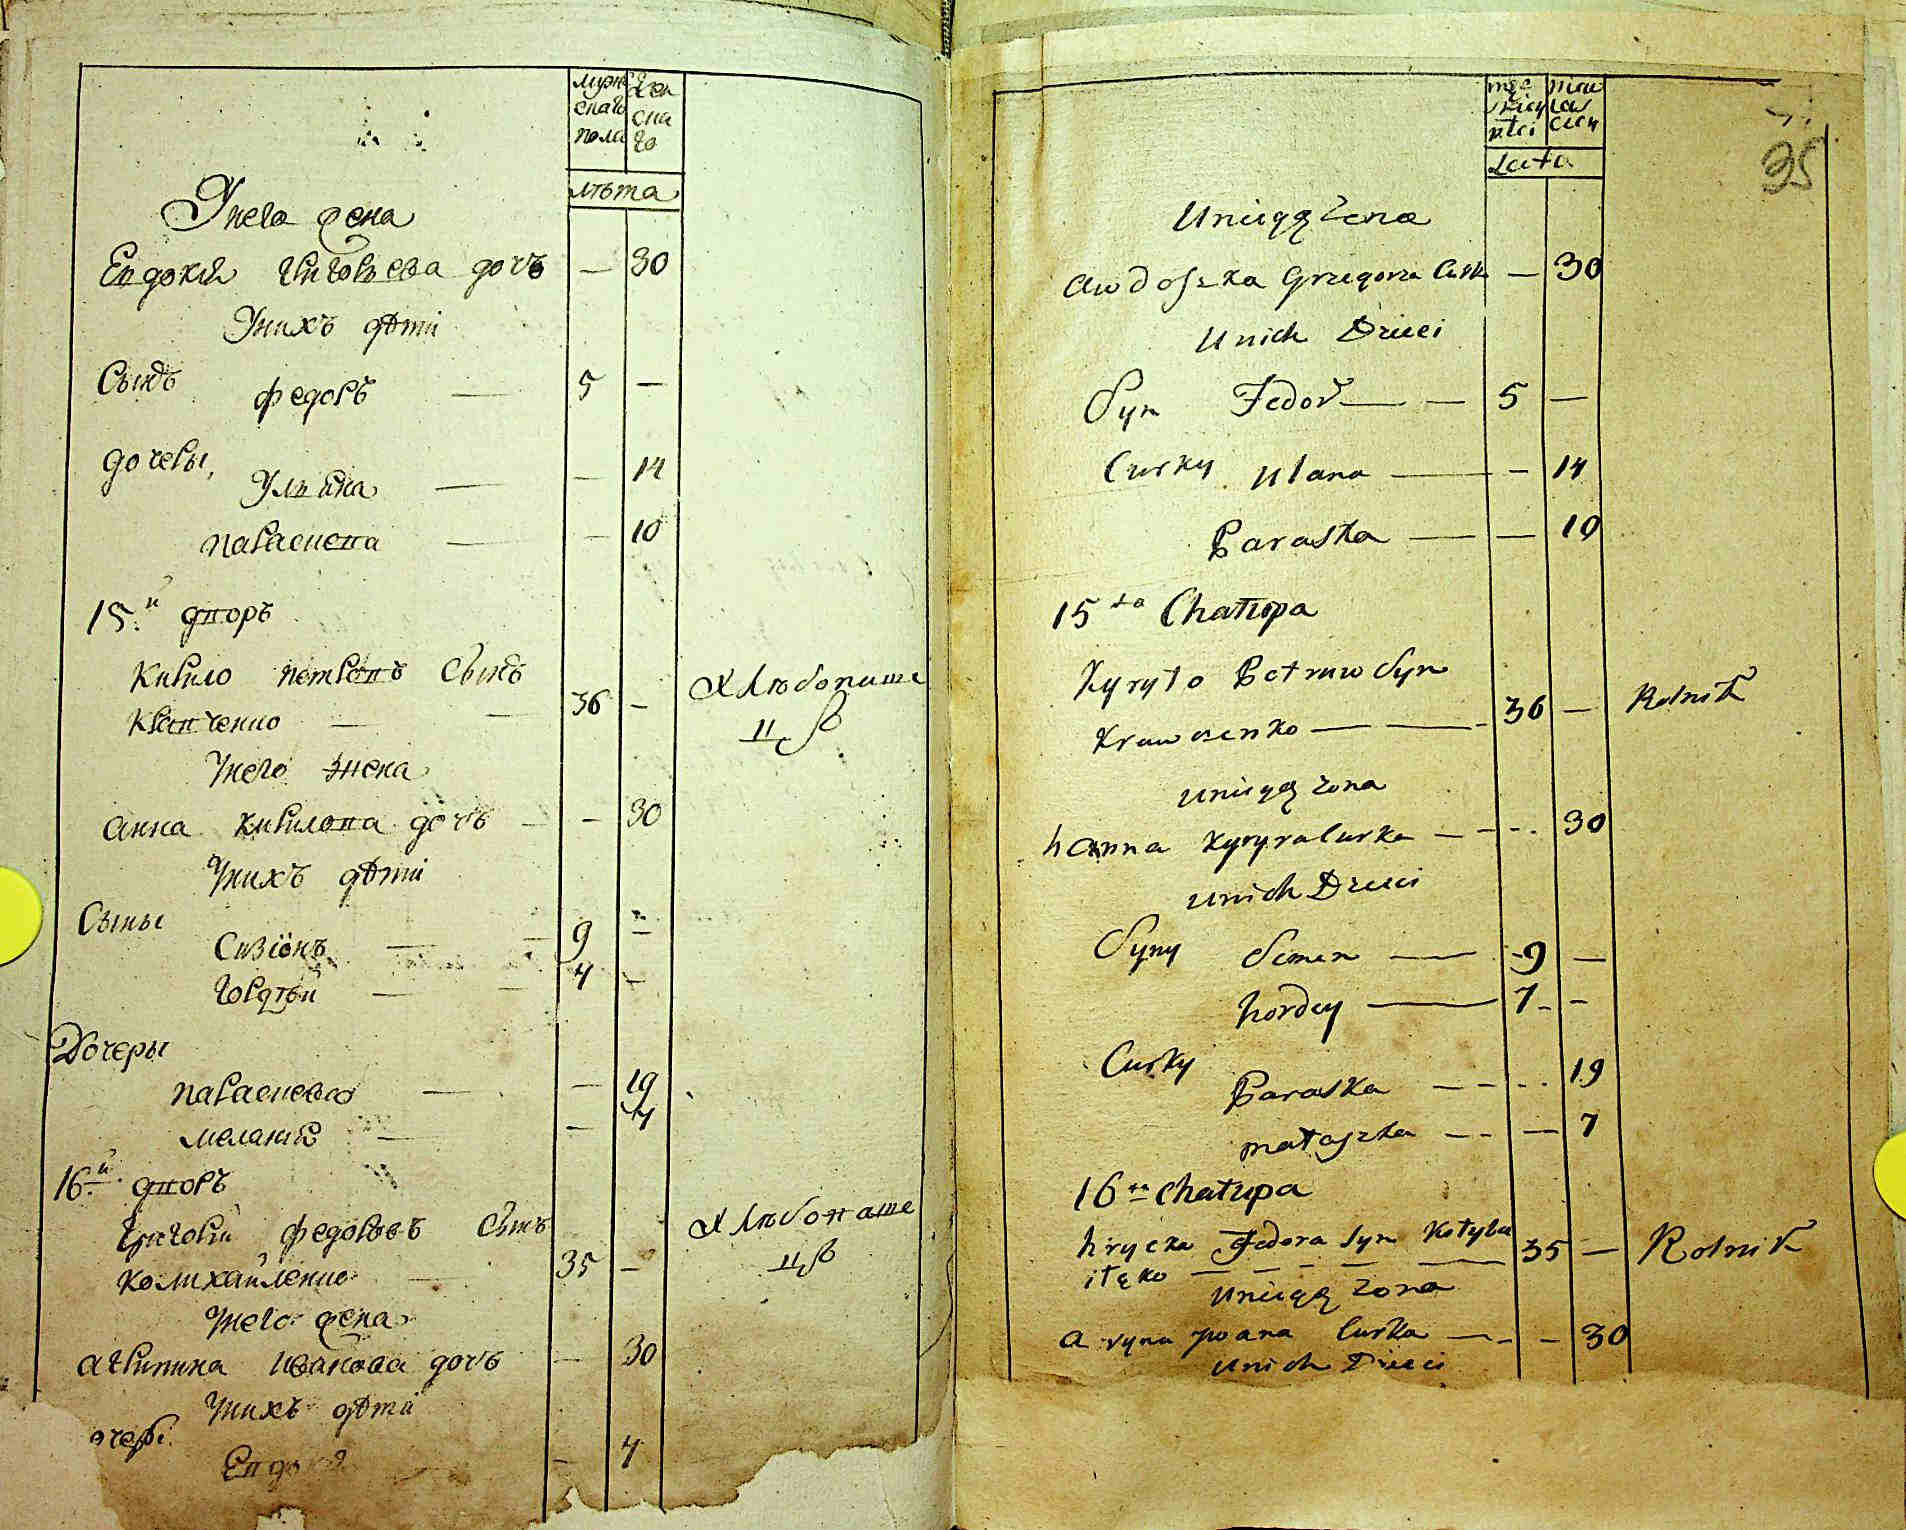 мужескаго пола
женскаго
лѣта
У него жена
Евдокія Григорьева дочъ — 30
У нихъ дѣти
Сынъ Федоръ — 5 —
дочеры, Ульяна — — 14
Параскева — — 10
15.й дворъ
Кирило Петровъ Сынъ
Кравченко — — 36 — Хлѣбопаше
цъ
У него жена
Анна Кирилова дочъ — — 30
У нихъ дѣти
Сыны
Сизіонъ — — 9 —
Гордѣй — — 4 —
Дочеры
Параскева — — 19
Меланія — — 4
16.й дворъ
Григорій Федоровъ Сынъ Хлѣбопаше
35 — цъ
У него жена
Агрипина Иванова дочъ — 30
У нихъ дѣти
очеры
Евдо — 4
35
Lata
Uniego Zona
Awdoszka Grzegorza Curk — 30
Unich Dzieci
Syn Fedor — — 5 —
Curky Ulana — — 14
Paraska — — 10
15ta Chałupa
Kyryło Petruw Syn
Krawczenko — — 36 — Rolnik
Uniego zona
hanna Kyryła Curka — — 30
Unich Dzieci
Syny Semen — 9 —
hordey — 7 —
Curky
Paraska — — 19
Małaszka — — 7
16ta Chałupa
hrycko Fedora Syn 35 — Rolnik
Uniego zona
aryna Jwana Curka — — 30
Unich Dzieci